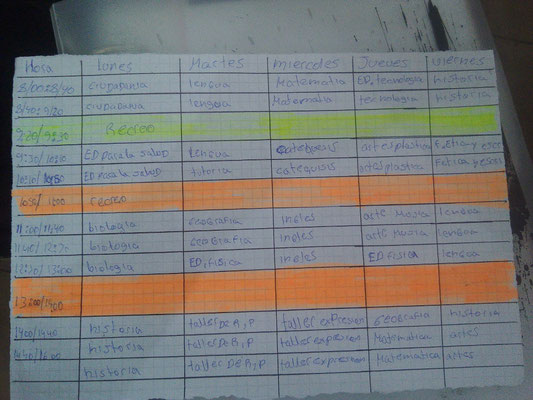 Hora Lunes Martes miercoles Jueves viernes
8/00:8/40 ciudadania lengua Matematica ED. tecnologia historia
8/40:9/20 ciudadania lengua Matematica tecnologia historia
9:20/9:30 Recreo
9:30/10:10 ED para la salud lengua catequesis
10:10/10:50 ED para la salud tutoria catequisis
10:50/11:00 recreo
11:00/11:40 biologia Geografia ingles arte Musica lengua
11:40/12:20 biologia Geografia ingles arte Musica lengua
12:20/13:00 biologia ED. fisica ingles ED fisica lengua
13:00/14:00
14:00/14:40 historia taller De R, P taller expresion Geografia historia
historia taller De R, P taller expresion Matematica artes
historia taller De R, P taller expresion Matematica artes